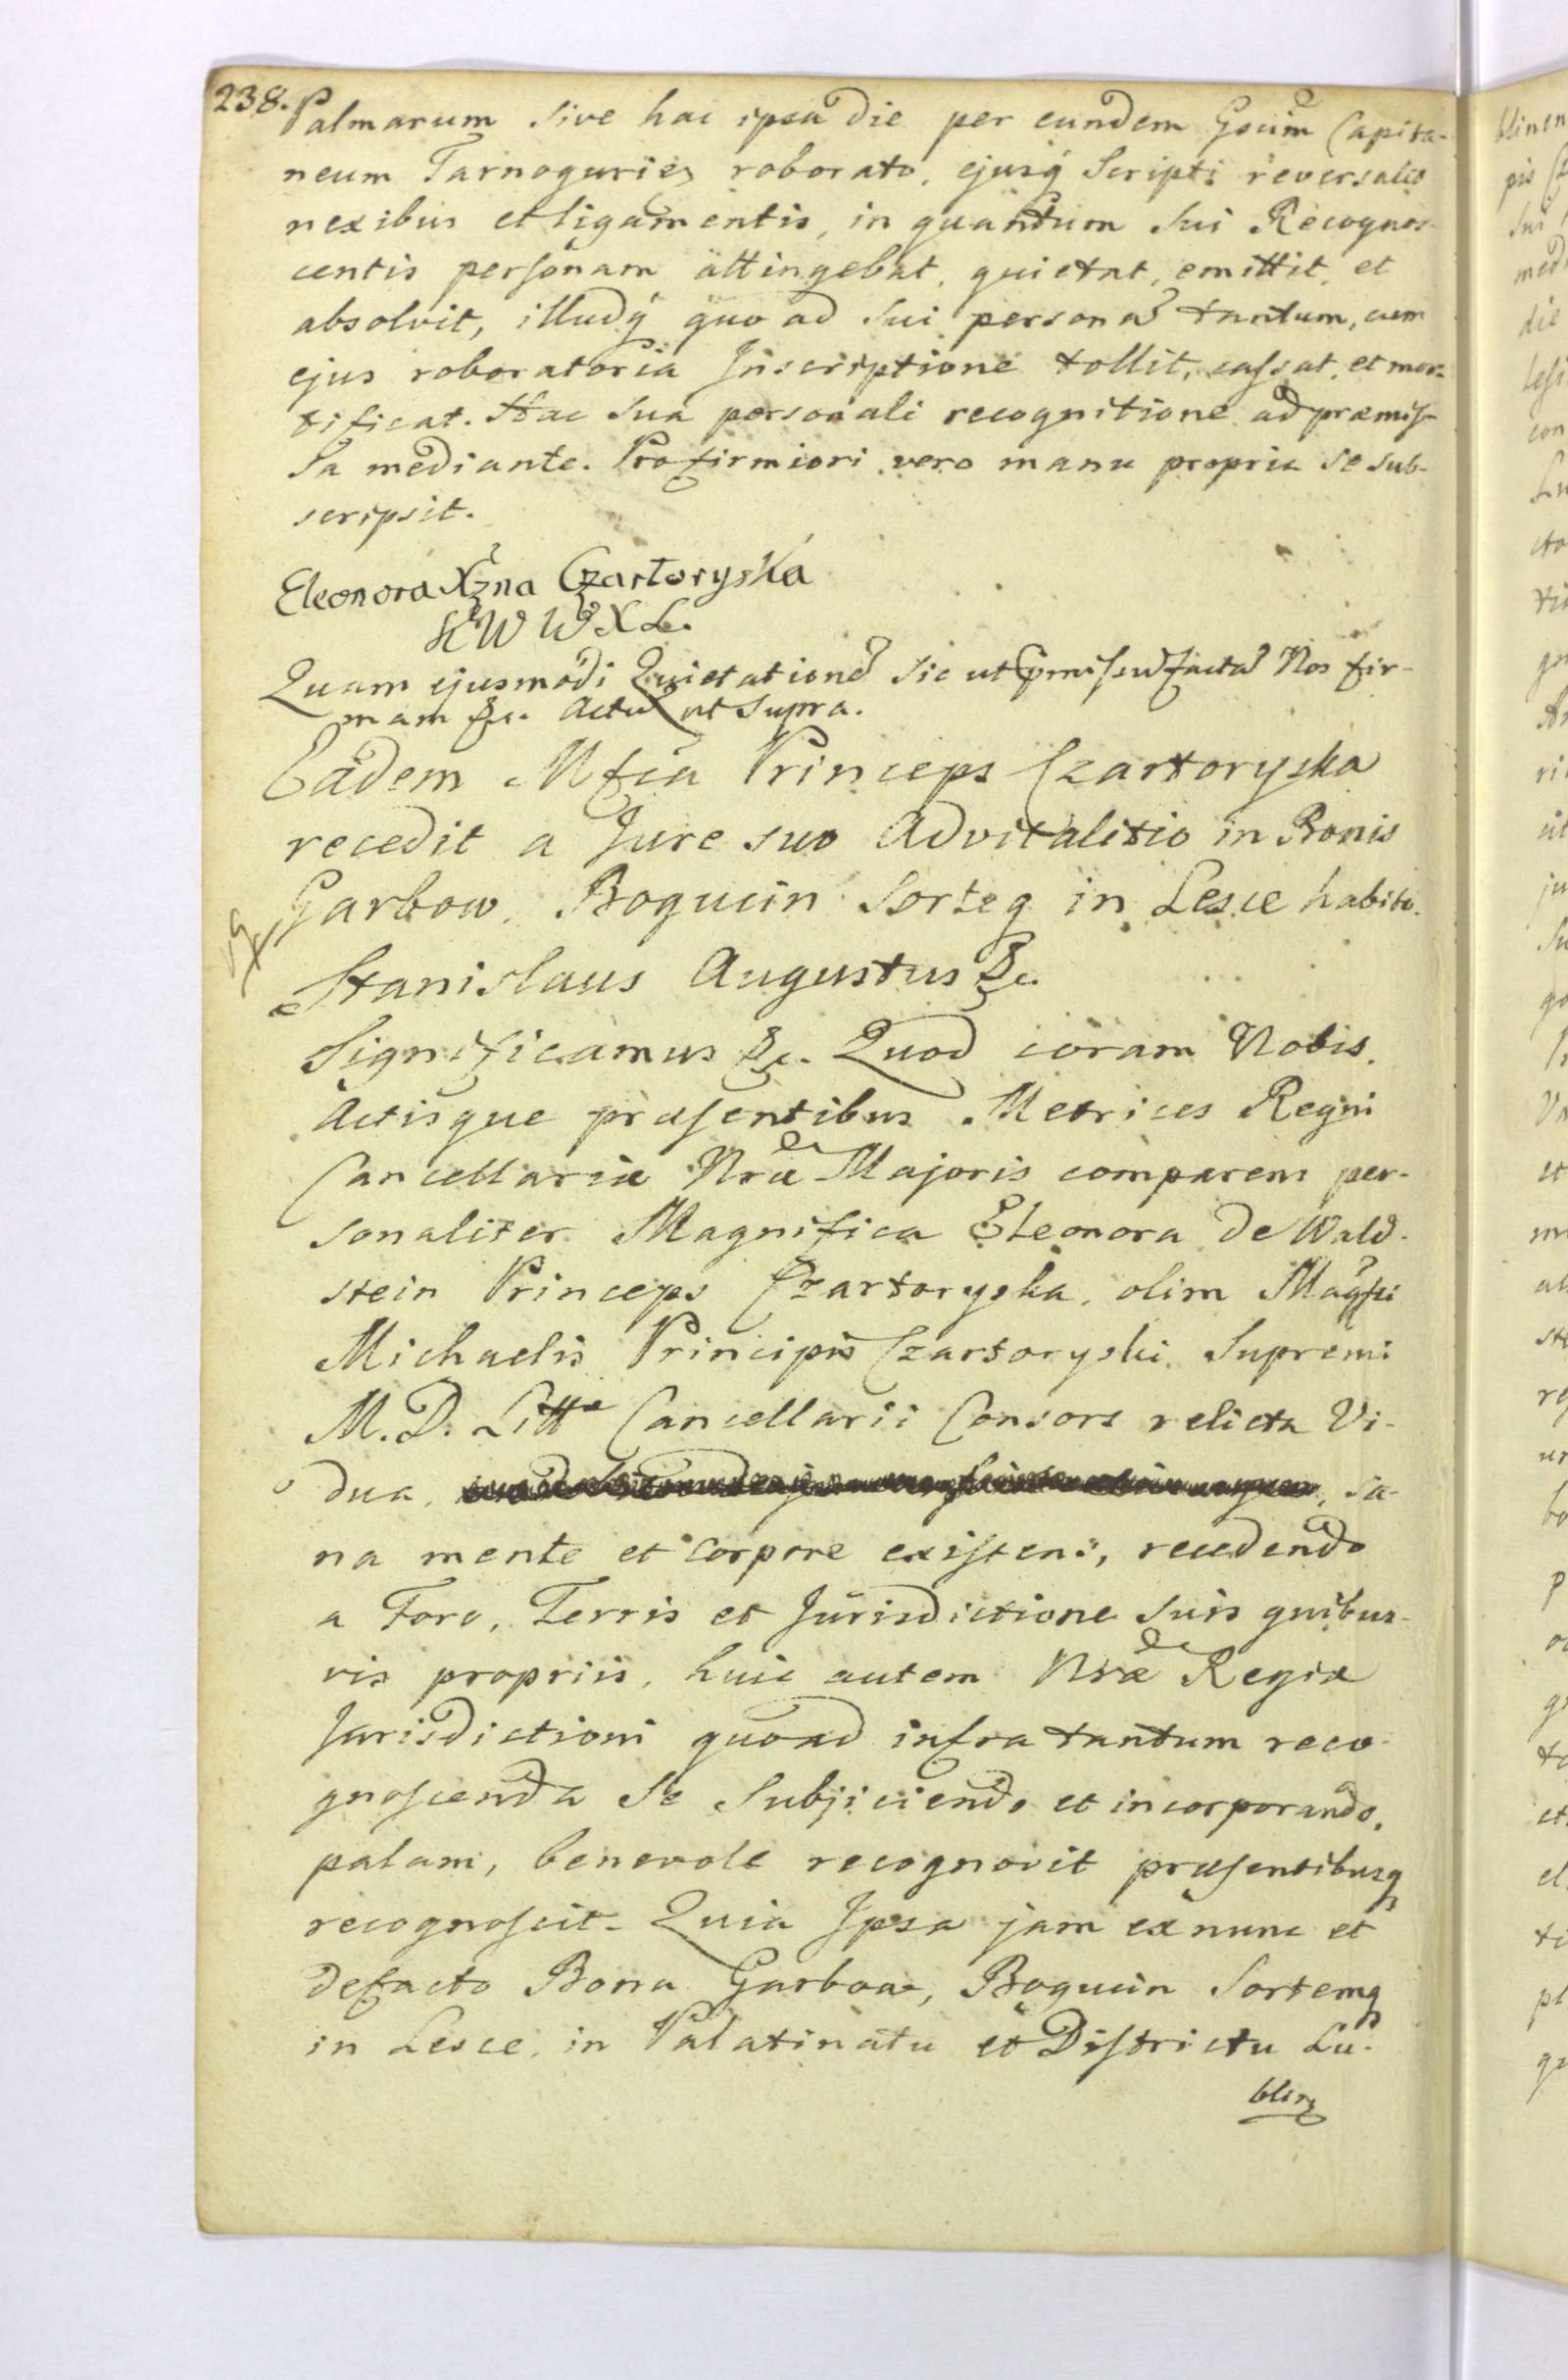 238. Palmarum sive hac ipsa die per eundem Gsum Capita-
neum Tarnogurien roborato, ejusq Scripti reversalis
nexibus et ligamentis, in quantum sui Recognos-
centis personam attingebat, quietat, emittit, et
absolvit, illudq quo ad sui persona tantum, cum
ejus roboratoria Inscriptione tollit, cassat, et mor-
tificat. Hac sua personali recognitione ad præmis-
sa mediante. Pro firmiori vero manu propria se sub-
scripsit.
Eleonora Xżna Czartoryska
K W W X L.
Quam ejusmodi Quietatione sic ut facta Nos fir-
mam &c. Actu ut supra.
Eadem Mfca Princeps Czartoryska
recedit a Jure suo Advitalitio in Bonis
Garbow, Bogucin Sorteq in Lesce habito.
Stanislaus Augustus &c.
Significamus &c. Quod coram Nobis,
Actisque præsentibus Metrices Regni
Cancellariæ Nræ Majoris comparens per-
sonaliter Magnifica Eleonora de Wald-
stein Princeps Czartoryska, olim Magfci
Michaelis Principis Czartoryski Supremi
M. D. Litt Cancellarii Consors relicta Vi-
dua, sa-
na mente et corpore existens, recedendo
a Foro, Terris et Jurisdictione suis quibus-
vis propriis, huic autem Nræ Regiæ
Jurisdictioni quoad infra tantum reco-
gnoscenda se subjiciendo et incorporando,
palam, benevole recognovit præsentibusq
recognoscit. Quia Ipsa jam ex nunc et
defacto Bona Garbow, Bogucin Sortemq
in Lesce, in Palatinatu et Districtu Lu-
blin